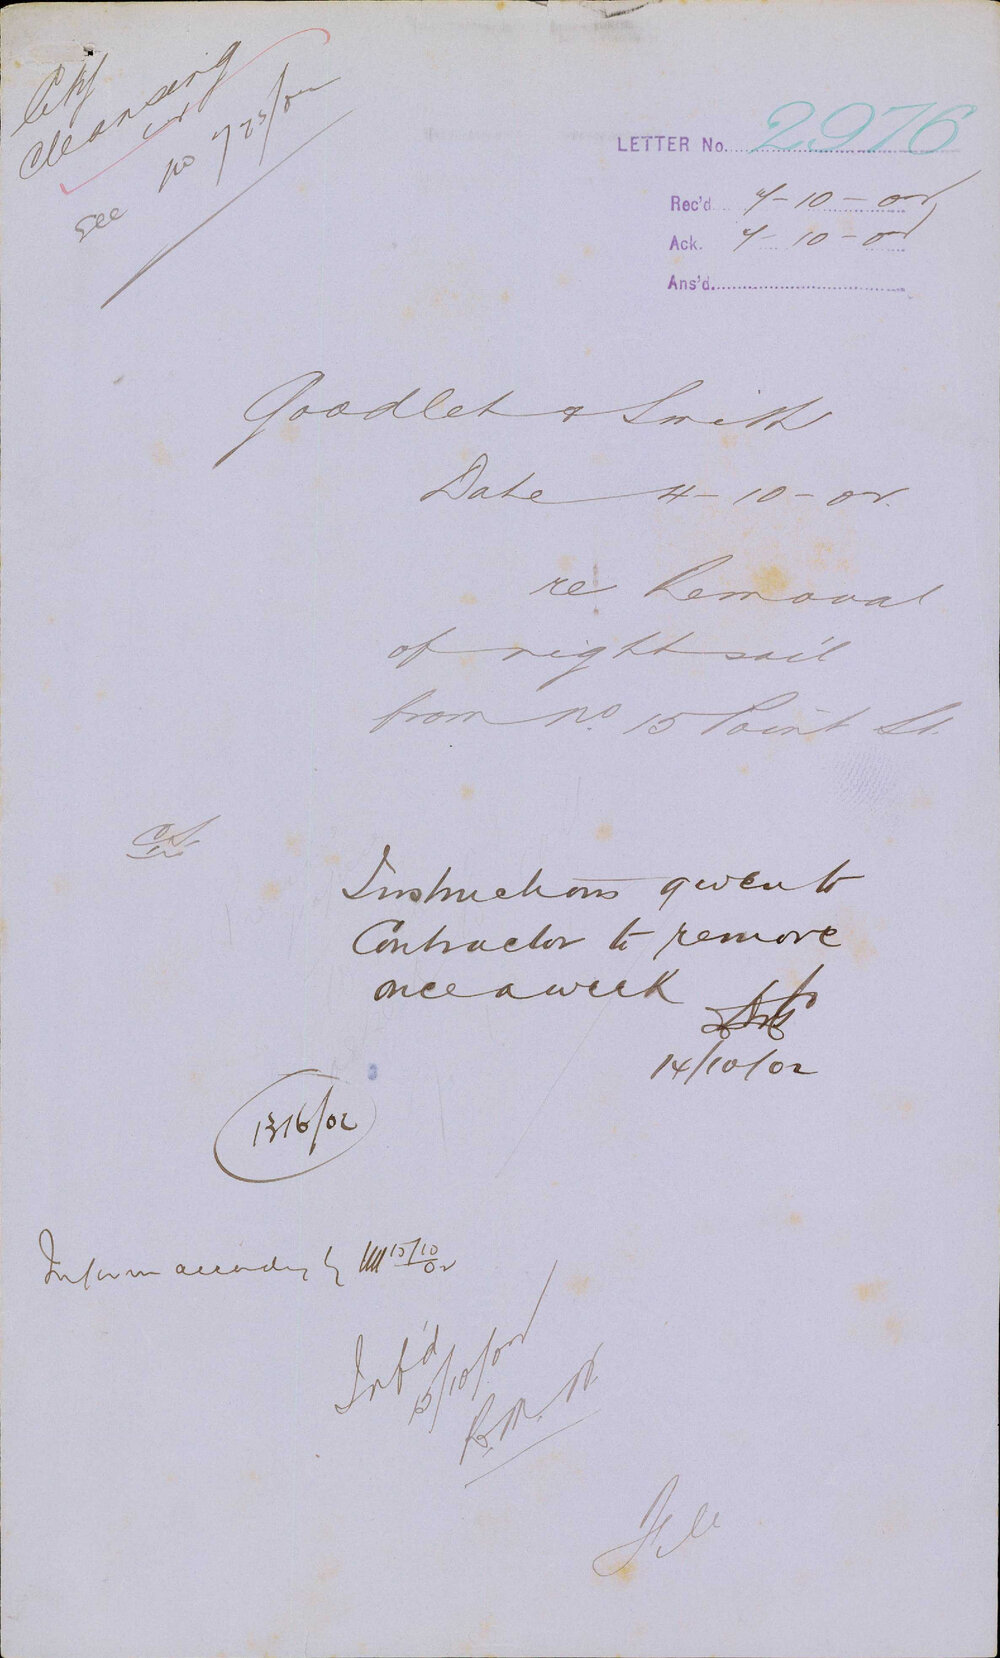 City
Cleansing
see no 725/02
LETTER No. 2976
Rec'd 7-10-02
Ack. 7-10-02
Ans'd.
Goodlet & Smith
Date 4-10-02.
re Removal
of night soil
from No. 15 Point St.
Instructions given to
Contractor to remove
once a week
14/10/02
1316/02
Inform accordingly 15/10/02
Inf'd
15/10/02
File